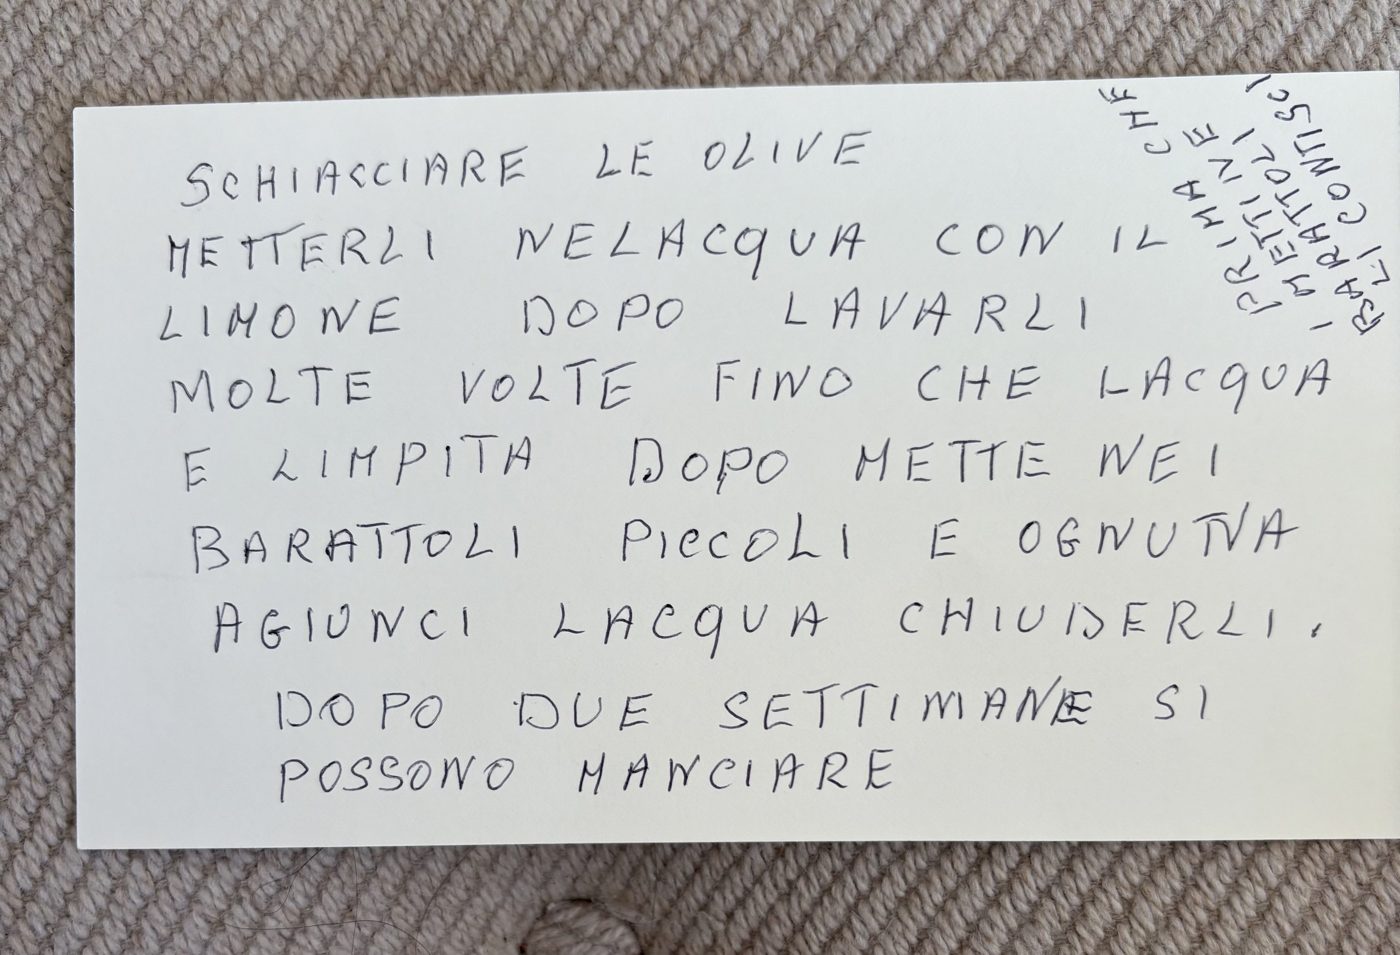 SCHIACCIARE LE OLIVE
METTERLI NELACQUA CON IL
LIMONE DOPO LAVARLI
MOLTE VOLTE FINO CHE LACQUA
E LIMPITA DOPO METTE NEI
BARATTOLI PICCOLI E OGNUTNA
AGIUNCI LACQUA CHIUDERLI.
DOPO DUE SETTIMANE SI
POSSONO MANCIARE
PRIMA CHE
I METTI NE
BARATTOLI
LI CONTISCI